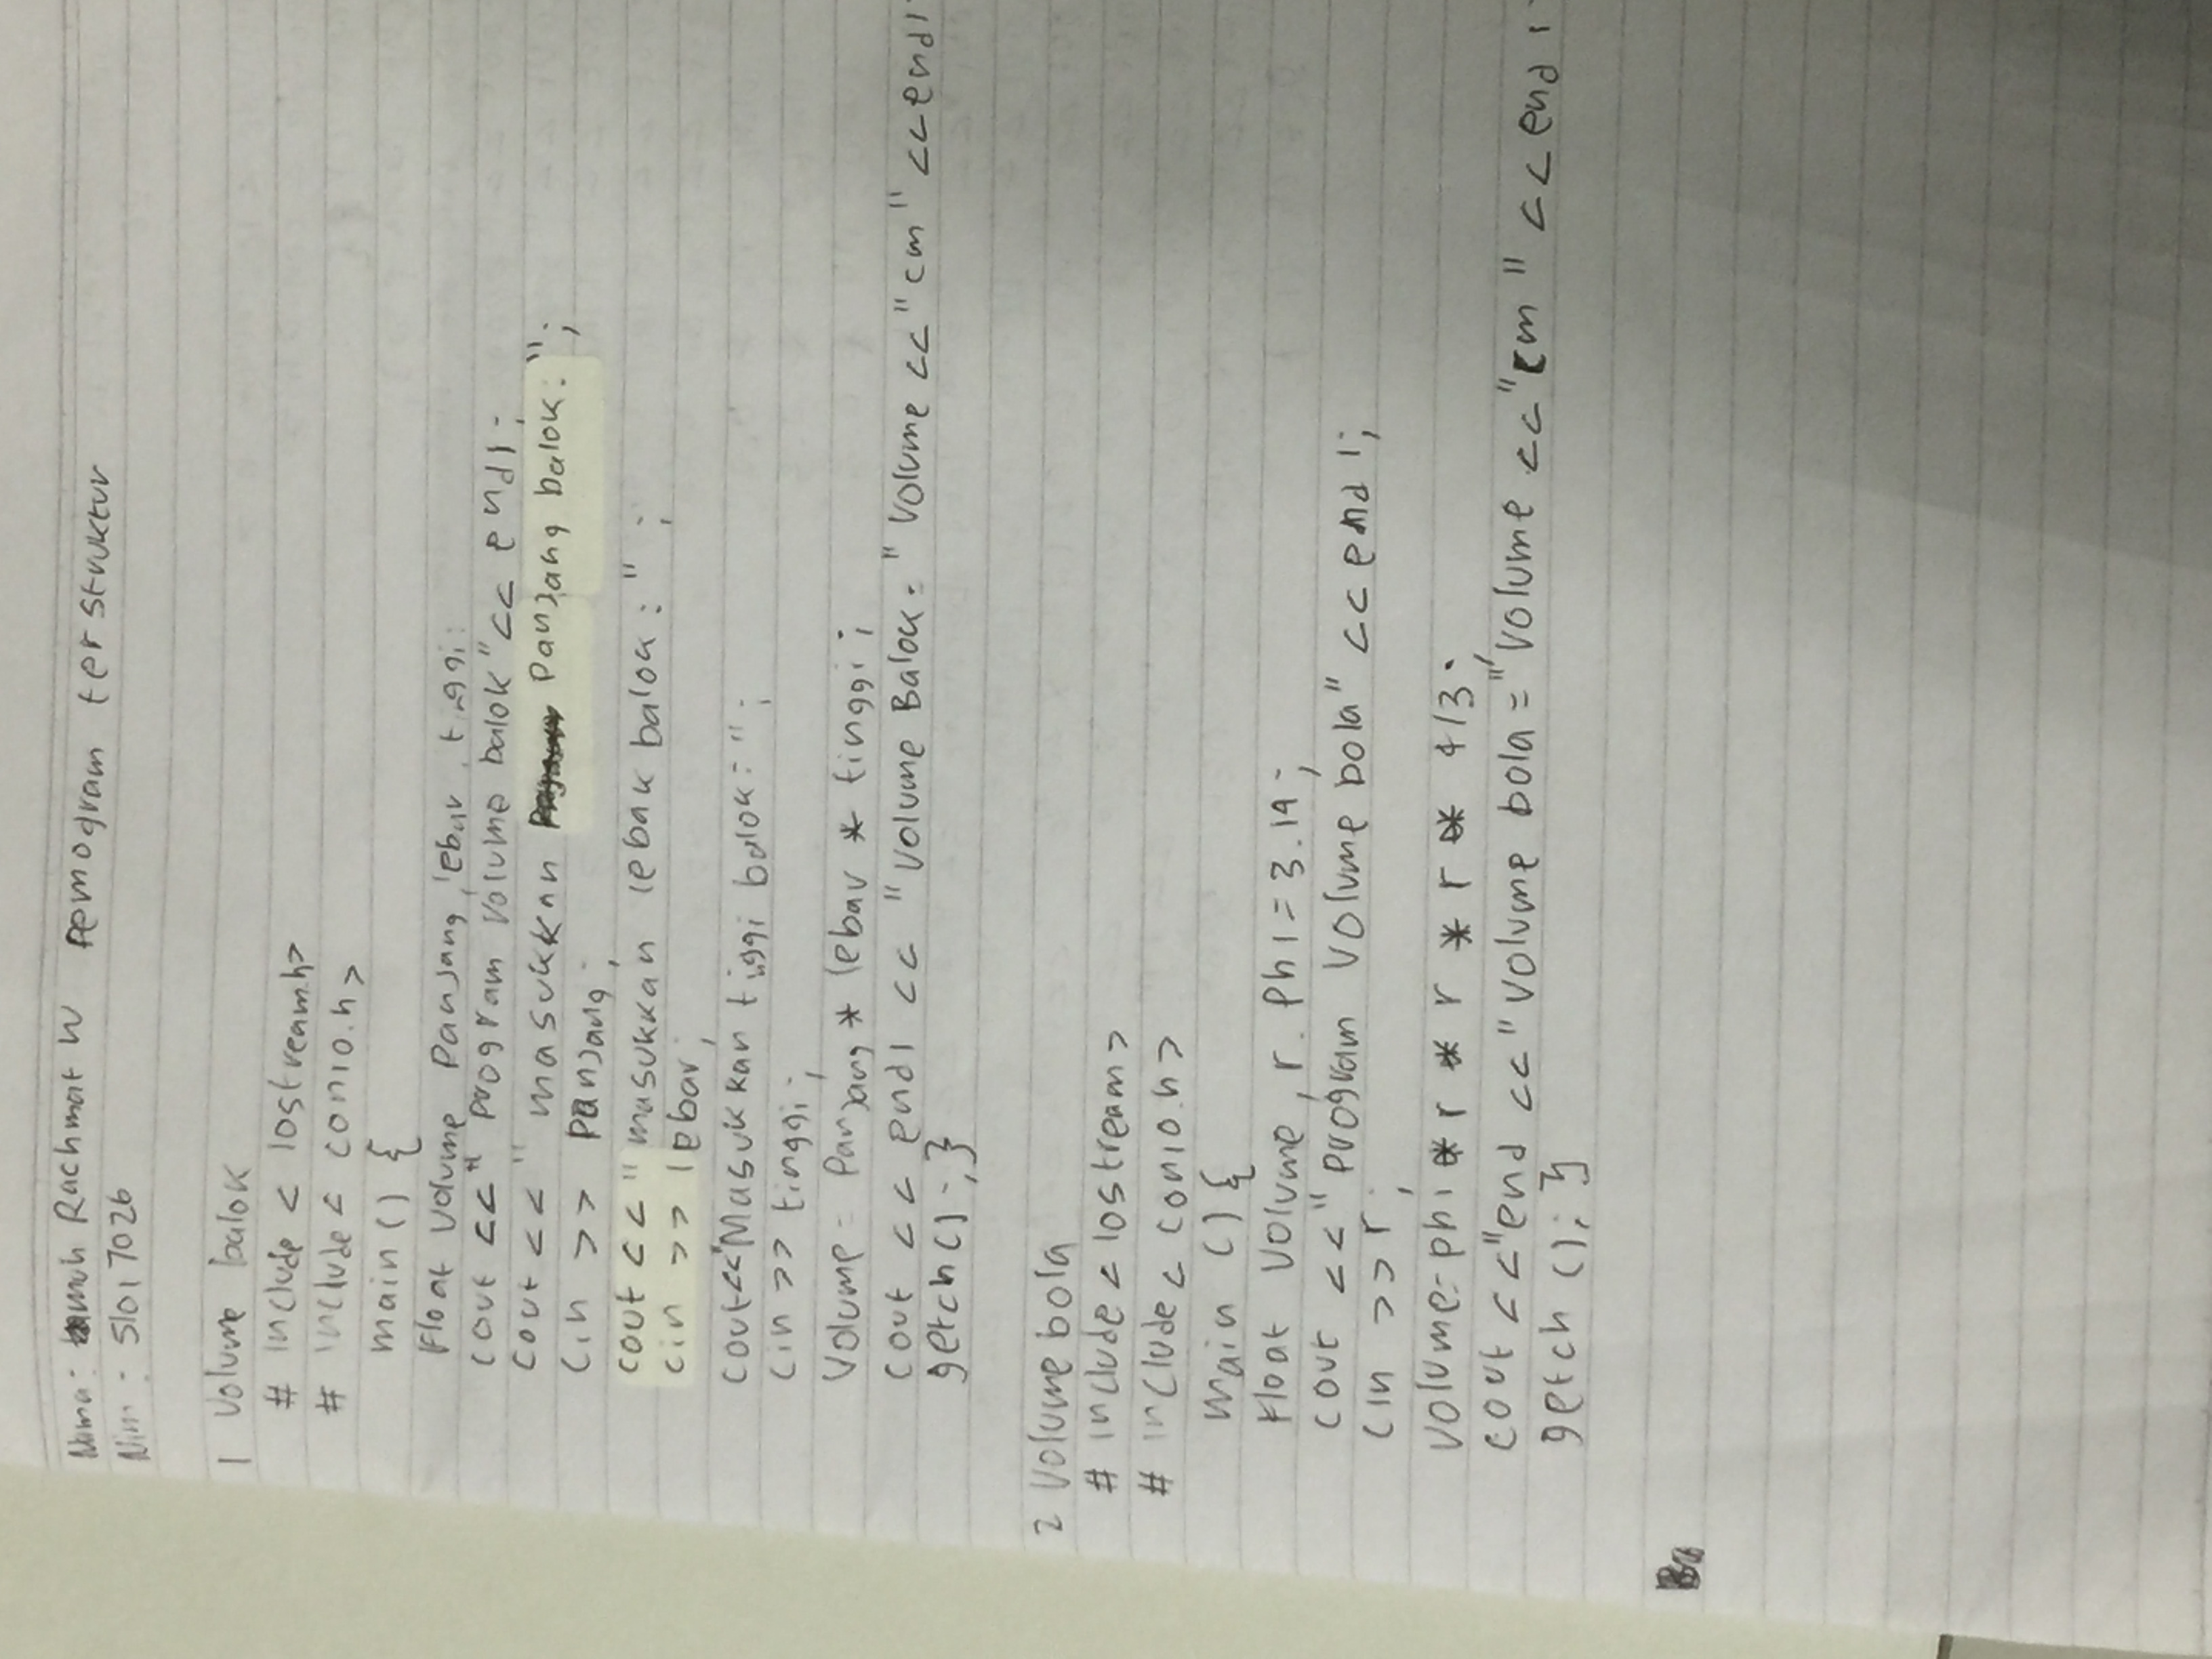 Nama: muh Rachmat W Pemogram terstruktur
Nim : 51017026
1 Volume balok
# include < iostream.h>
# include < conio.h >
main () {
Float Volume Panjang, lebar, tinggi;
cout << " Program Volume balok" << endl;
cout << " masukkan Panjang balok: ";
cin >> Panjang;
cout << " masukkan lebak balok : " ;
cin >> lebar;
cout<<"Masukkan tiggi balok: ";
cin >> tinggi;
Volume = Panjang * lebar * tinggi;
cout << endl << "Volume Balok = " Volume << "cm" << endl
getch() ; }
2 Volume bola
# include < iostream >
# include < conio.h >
main () {
Float Volume, r. Phi = 3.14;
cout << " Program Volume bola" << endl;
cin >> r;
volume = phi * r * r * r * 4/3;
cout <<"end << "Volume bola = " Volume << "cm" << endl
getch (); }